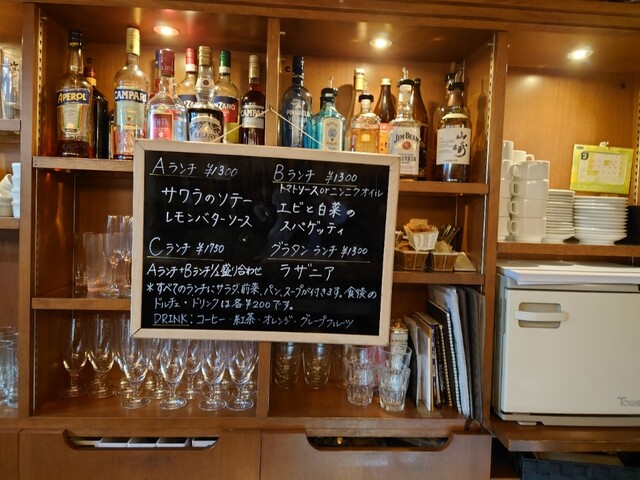 APEROL
CAMPARI
CAMPARI
JIM BEAM
山崎
Aランチ ¥1300
サワラのソテー
レモンバターソース
Bランチ ¥1300
トマトソース or ニンニクオイル
エビと白菜の
スパゲッティ
Cランチ ¥1750
Aランチ+Bランチ1/2盛り合わせ
グラタン ランチ ¥1300
ラザニア
*すべてのランチにサラダ、前菜、パン、スープが付きます。食後の
ドルチェ・ドリンクは各¥200です。
DRINK:コーヒー・紅茶・オレンジ・グレープフルーツ